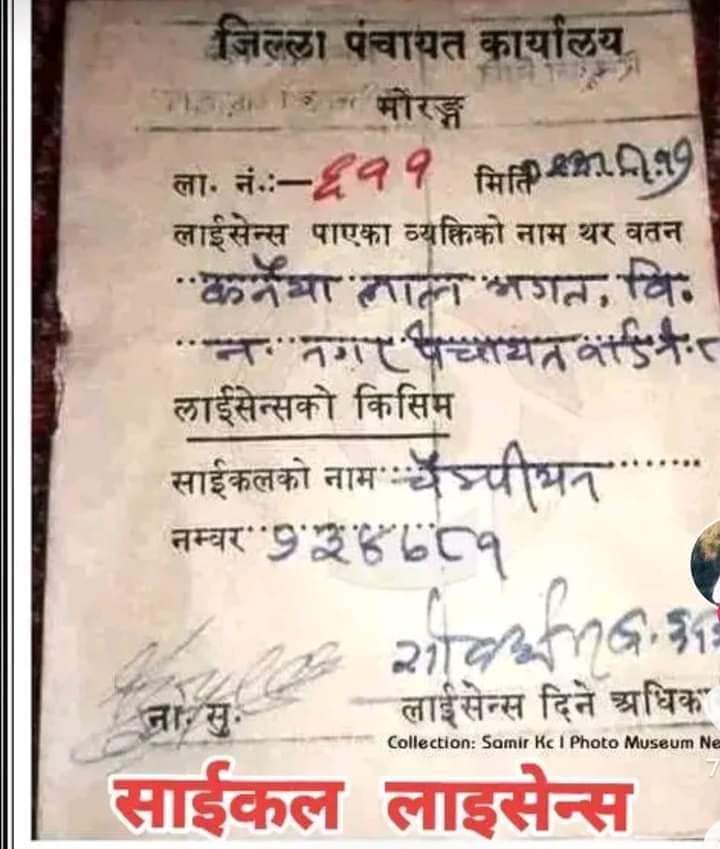 जिल्ला पंचायत कार्यालय
मोरङ्ग
ला. नं.:- ६११ मिति
लाईसेन्स पाएका व्यक्तिको नाम थर वतन
कनैया लाल भगत, वि.
न. नगर पंचायत वार्ड नं. ८
लाईसेन्सको किसिम
साईकलको नाम चैम्पीयन
नम्वर १३४७८१
ना. सु.
लाईसेन्स दिने अधिक
Collection: Samir Kc I Photo Museum Ne
साईकल लाइसेन्स